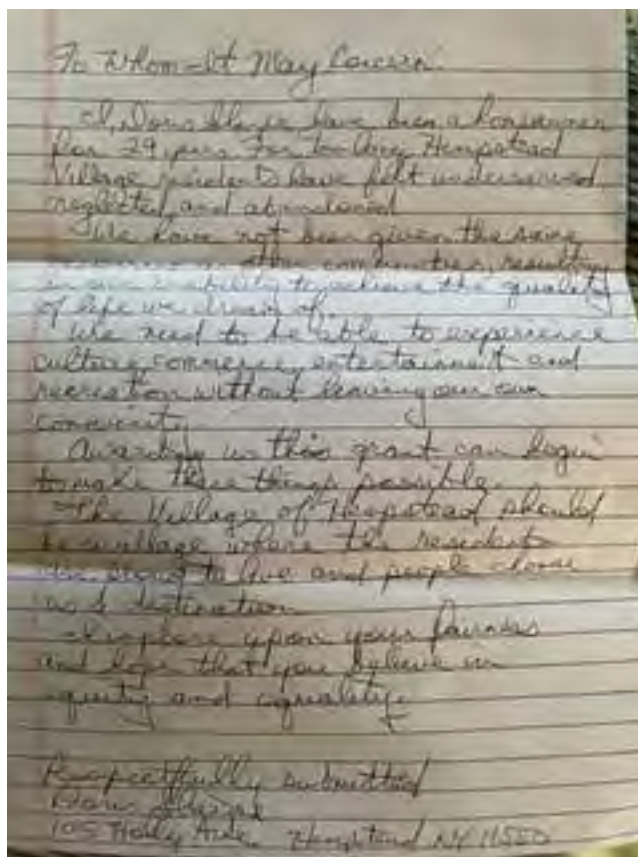 To Whom It May Concern
I, Doris have been a homeowner
for 29 years For too long Hempstead
Village residents have felt underserved,
neglected, and abandoned
We have not been given the same
other communities, resulting
in our inability to achieve the quality
of life we dream of.
We need to be able to experience
culture, commerce, entertainment and
recreation without leaving our own
community
Awarding us this grant can begin
to make these things possible.
The Village of Hempstead should
be a village where the residents
are proud to live and people choose
as a destination
I implore upon your fairness
and hope that you believe in
equity and equality.
Respectfully submitted
Doris
105 Holly Ave. Hempstead NY 11550